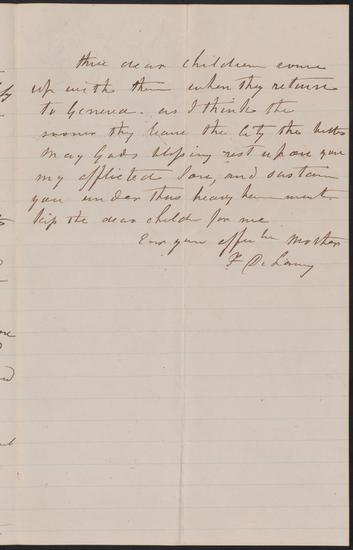 three dear children come
up with them when they return
to Geneva. as I think the
sooner they leave the City the better
May Gods blessing rest upon you
my afflicted Son, and sustain
you under this heavy bereavement
kiss the dear child for me
Ever your affec Mother
F De Lancy